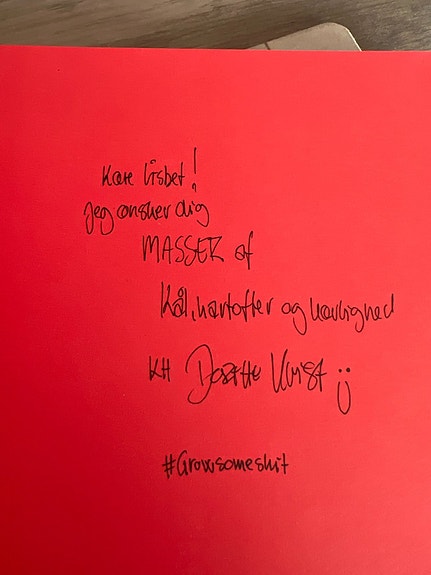 Kære Lisbet!
Jeg ønsker dig
MASSER af
kål, kartofler og kærlighed
KH Dorthe Kvist :)
#Growsomeshit